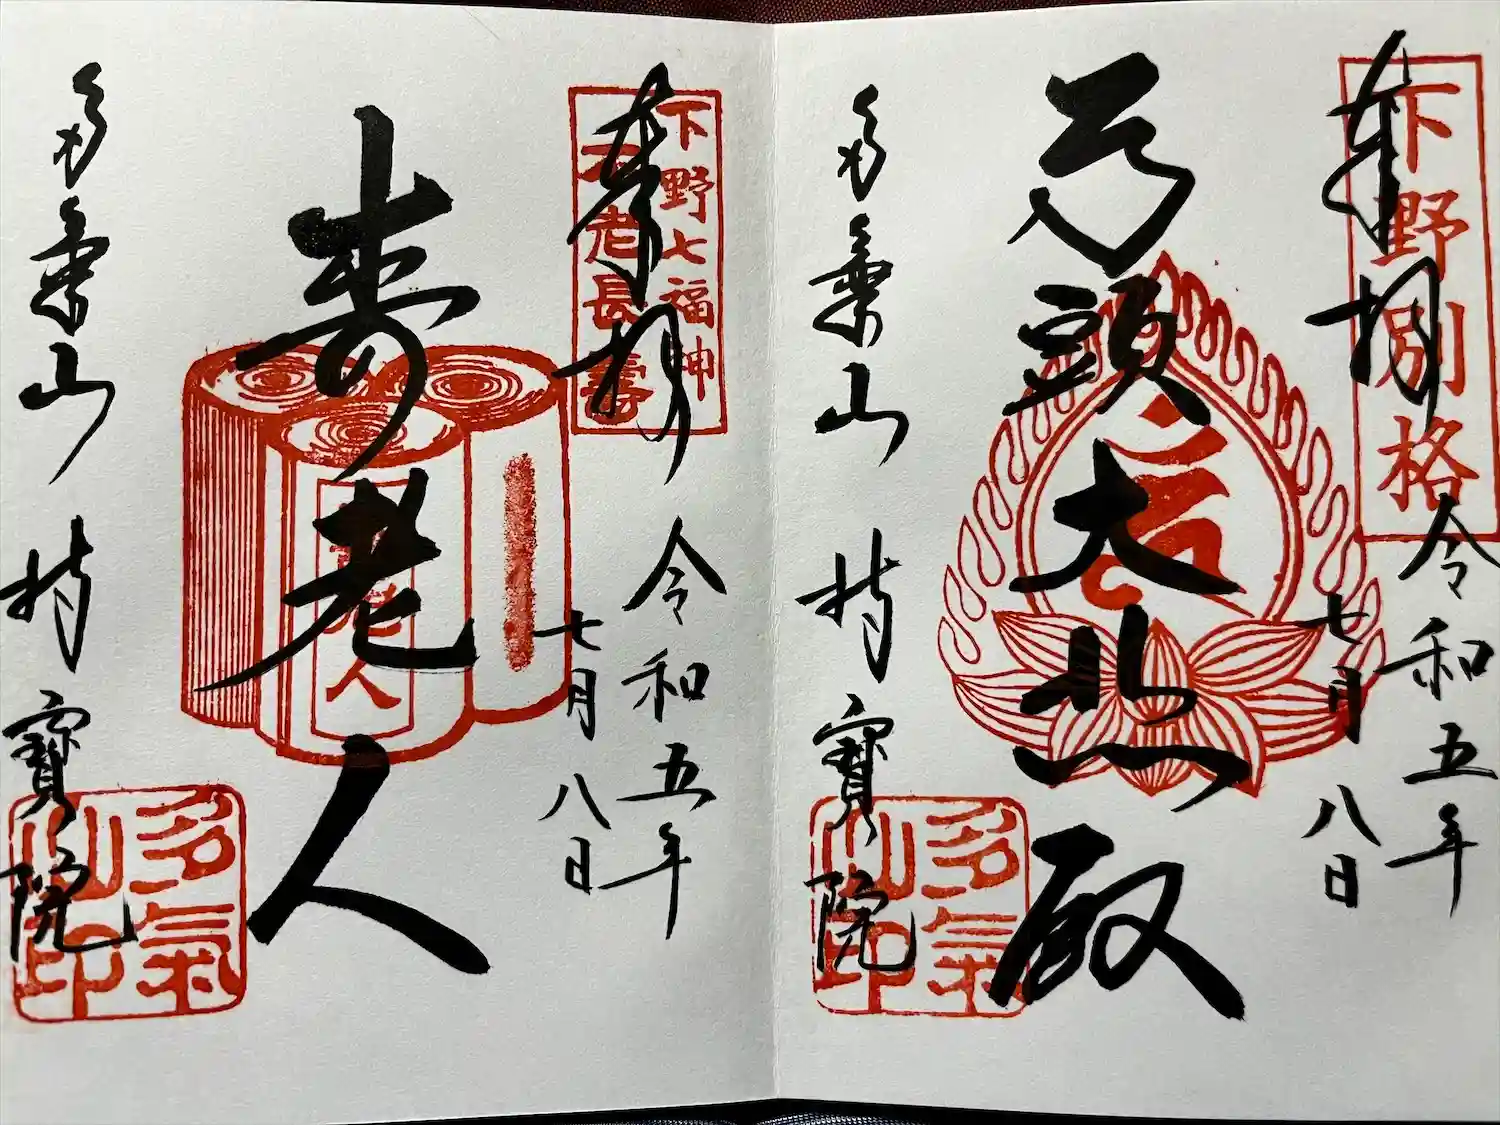 奉拝
下野別格
令和五年
七月八日
馬頭大悲殿
多氣山
持寳院
多氣山印
奉拝
下野七福神
不老長壽
令和五年
七月八日
寿老人
寿老人
多氣山
持寳院
多氣山印